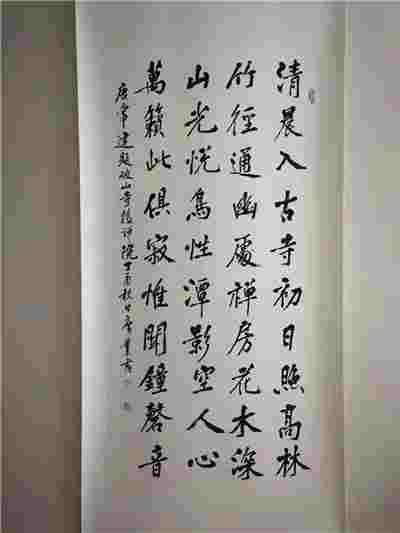 清晨入古寺初日照高林
竹徑通幽處禅房花木深
山光悦鳥性潭影空人心
萬籟此俱寂惟聞鐘磬音
唐常建題破山寺後禅院丁酉秋